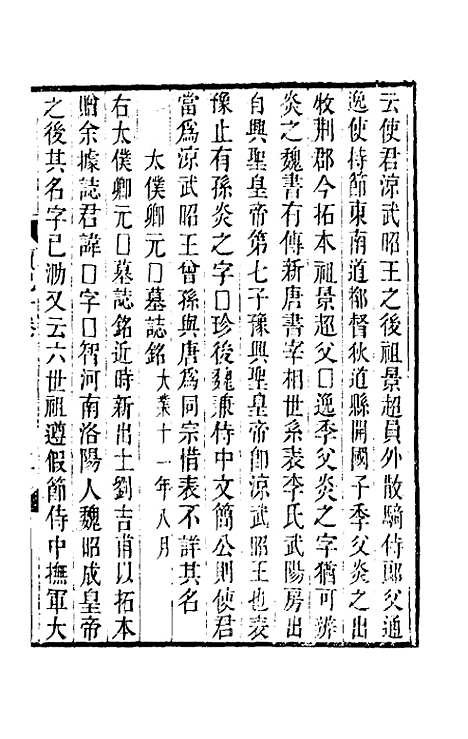 云使君涼武昭王之後祖景超員外散騎侍郎父通
逸使持節東南道都督狄道縣開國子季父炎之出
牧荆郡今拓本祖景超父口逸季父炎之字猶可辨
炎之魏書有傳新唐書宰相世系表李氏武陽房出
自興聖皇帝第七子豫興聖皇帝卽涼武昭王也表
豫止有孫炎之字口珍後魏兼侍中文簡公則使君
當爲涼武昭王曾孫與唐爲同宗惜表不詳其名
太僕卿元口墓誌銘大業十一年八月
右太僕卿元口墓誌銘近時新出土劉吉甫以拓本
贈余據誌君諱口字口智河南洛陽人魏昭成皇帝
之後其名字已泐又云六世祖遵假節侍中撫軍大